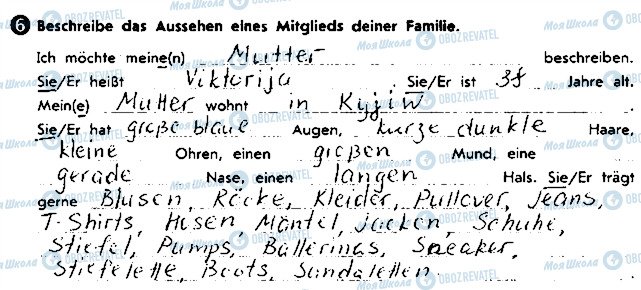 6 Beschreibe das Aussehen eines Mitglieds deiner Familie.
Ich möchte meine(n) Mutter beschreiben.
Sie/Er heißt Viktorija. Sie/Er ist 38 Jahre alt.
Mein(e) Mutter wohnt in Kyjiw.
Sie/Er hat große blaue Augen, kurze dunkle Haare,
kleine Ohren, einen großen Mund, eine
gerade Nase, einen langen Hals. Sie/Er trägt
gerne Blusen, Röcke, Kleider, Pullover, Jeans,
T-Shirts, Hosen, Mäntel, Jacken, Schuhe,
Stiefel, Pumps, Ballerinas, Sneaker,
Stiefelette, Boots, Sandaletten.